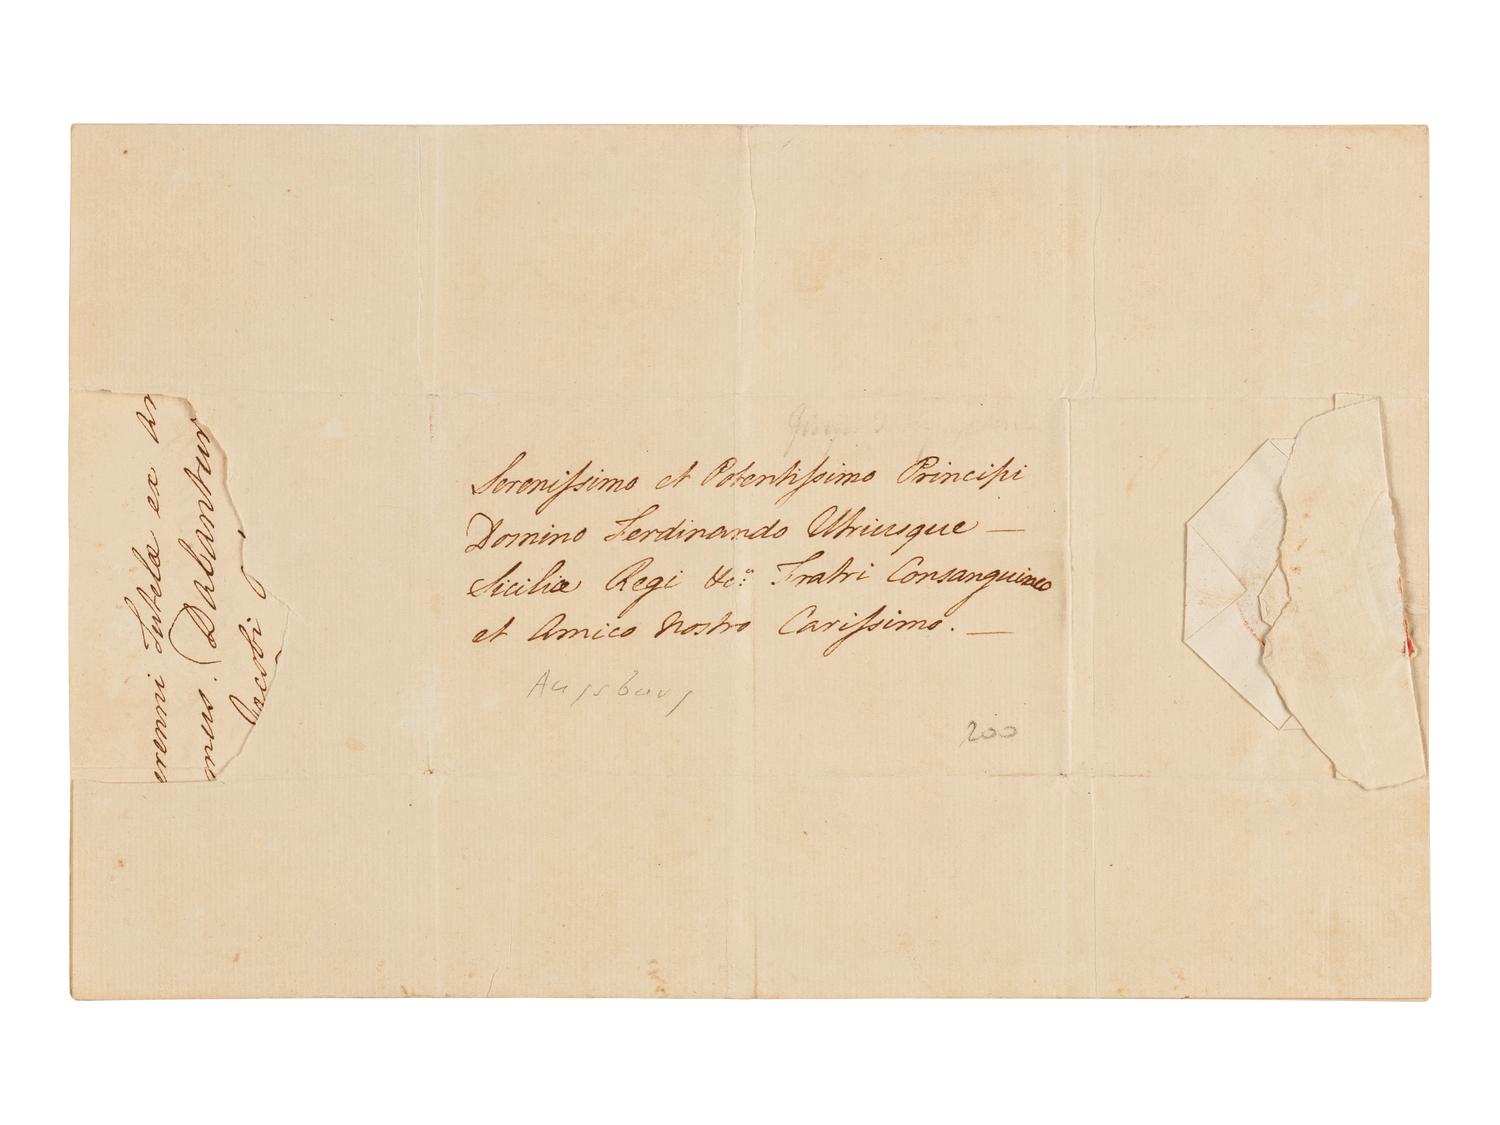 Serenissimo et Potentissimo Principi
Domino Ferdinando Utriusque —
Siciliæ Regi &c.ª Fratri Consanguineo
et Amico Nostro Carissimo. —
Augsburg
200
erenni Tutela ex
mus. Dabantur
Jacobi